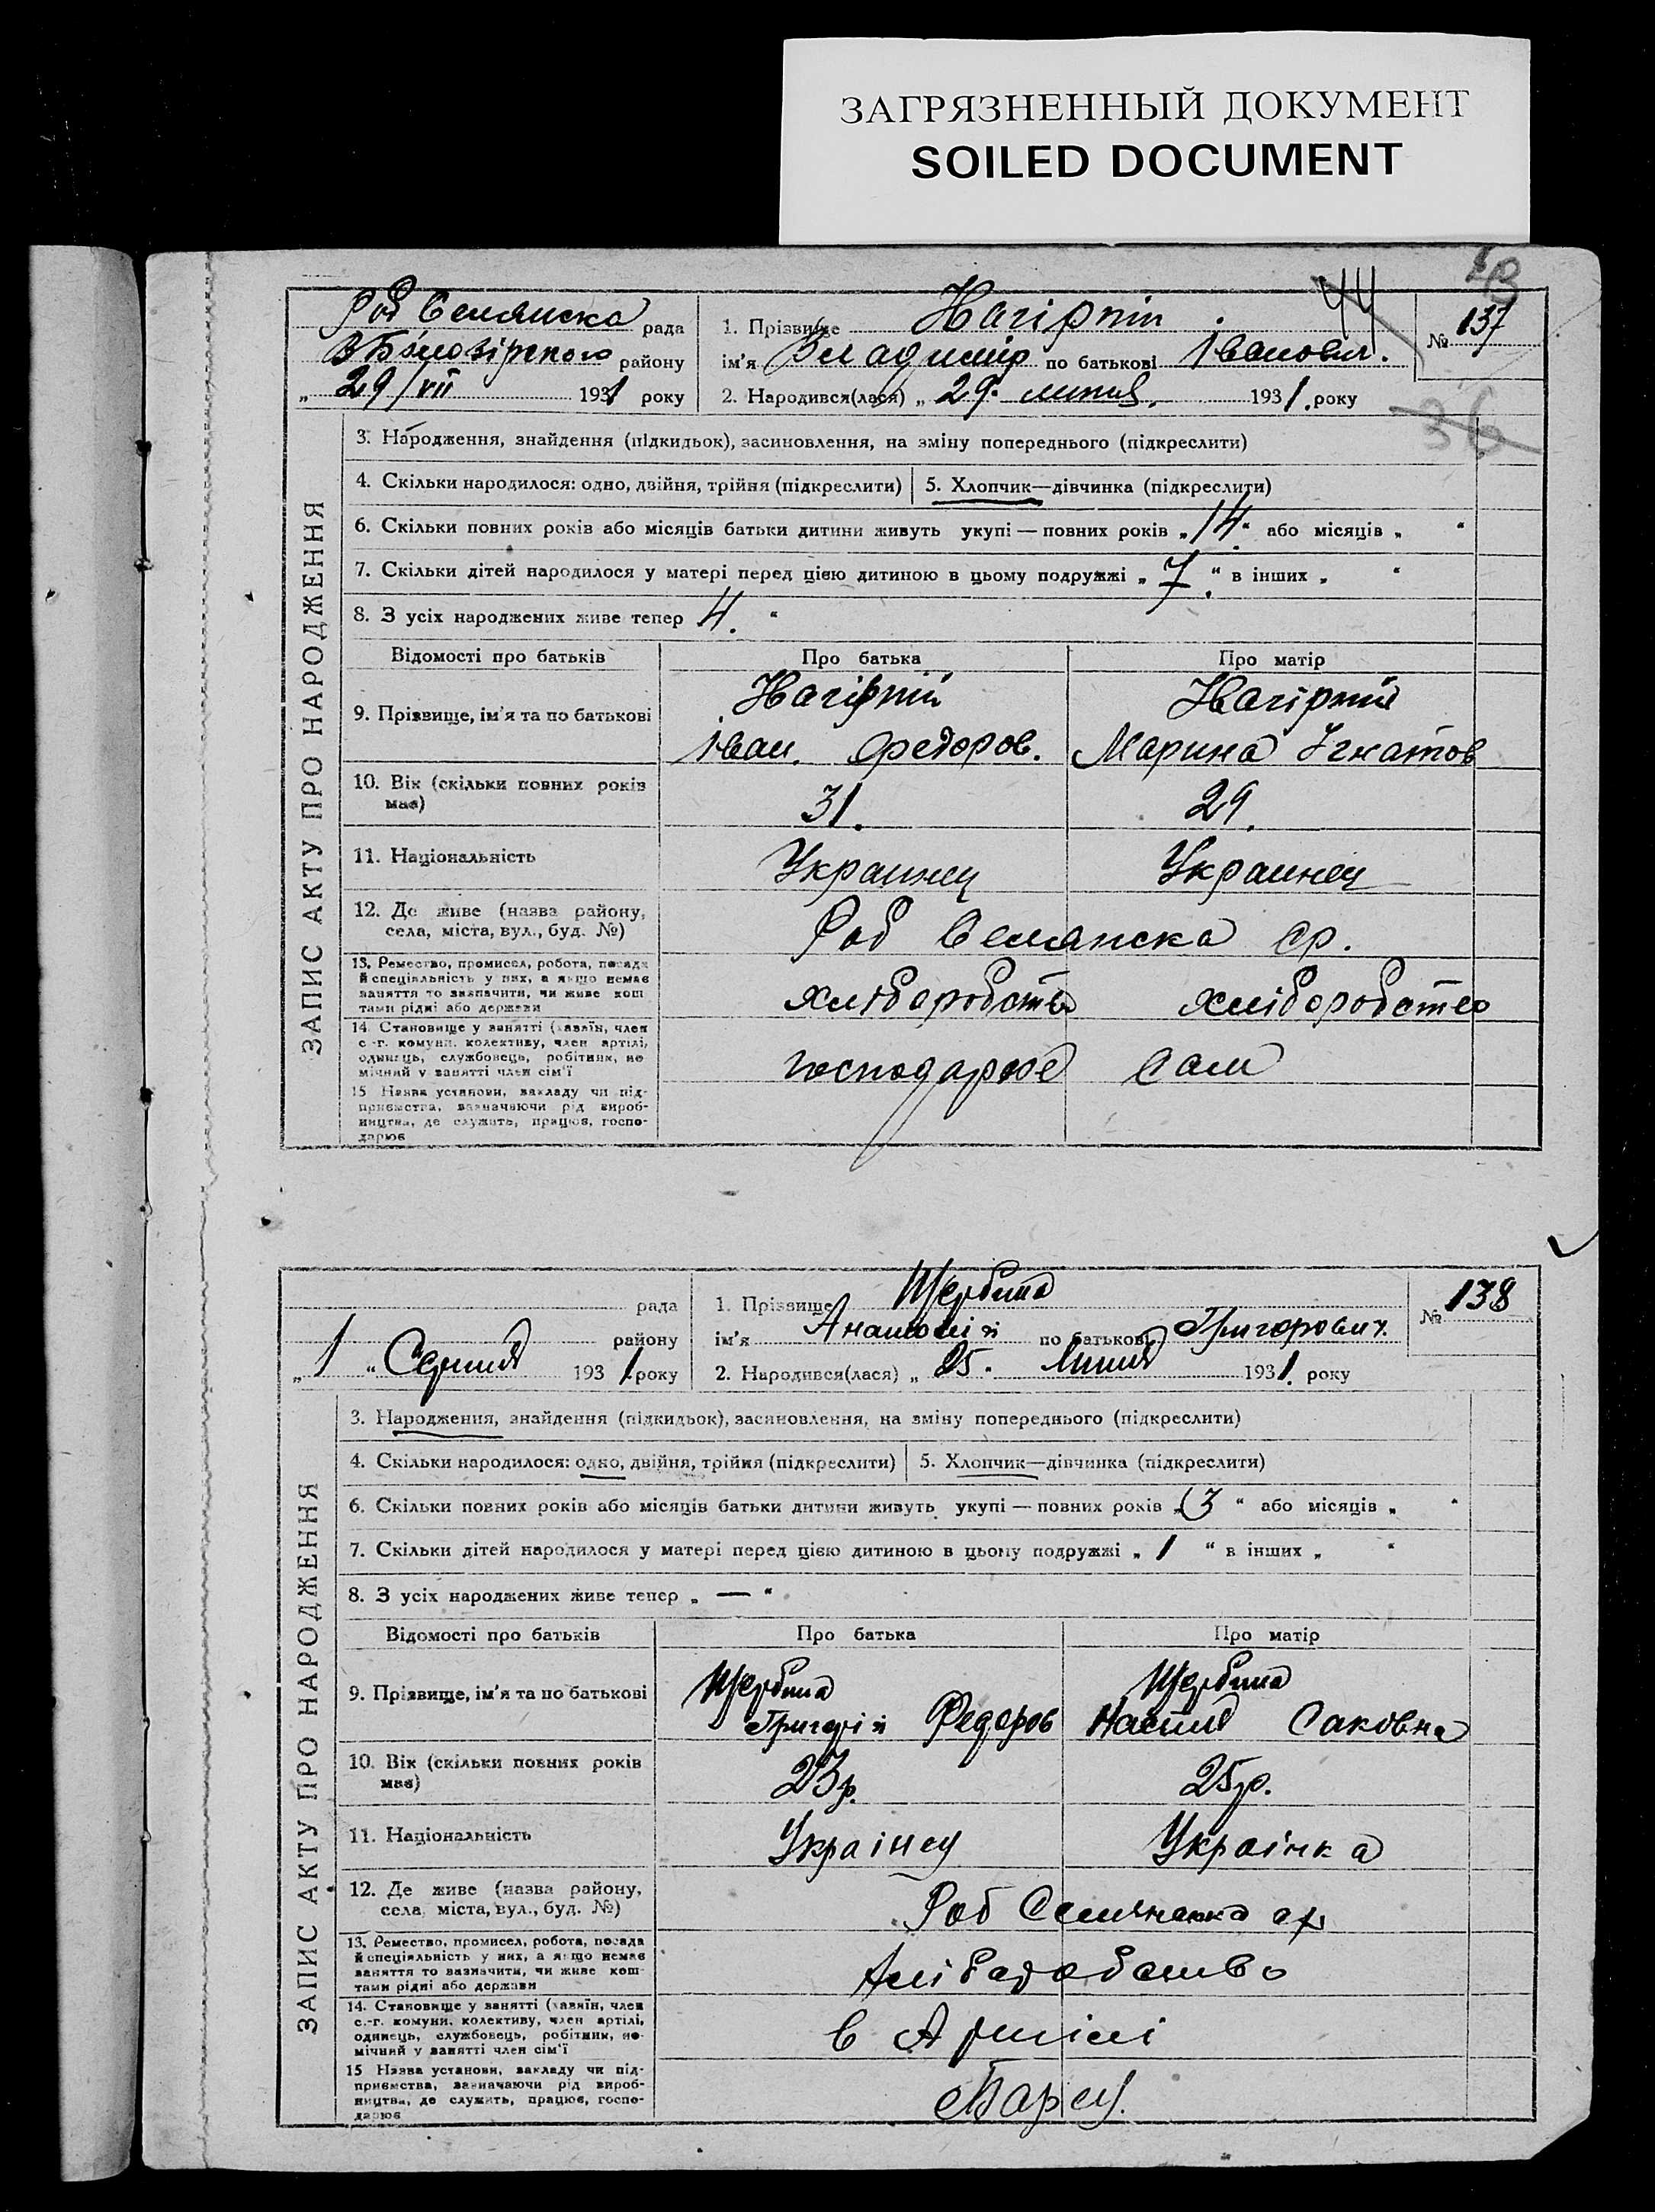 ЗАГРЯЗНЕННЫЙ ДОКУМЕНТ
SOILED DOCUMENT
44
36
ЗАПИС АКТУ ПРО НАРОДЖЕННЯ
Роб Селянска рада
району
„ 29/VII 1931 року
1. Прізвище Нагірний
№ 137
ім'я Владимир по батькові Іванович.
2. Народився(лася) „ 29. липня. 1931. року
3. Народження, знайдення (підкидьок), засиновлення, на зміну попереднього (підкреслити)
4. Скільки народилося: одно, двійня, трійня (підкреслити) 5. Хлопчик—дівчинка (підкреслити)
6. Скільки повних років або місяців батьки дитини живуть укупі — повних років „ 14 “ або місяців „ “
7. Скільки дітей народилося у матері перед цією дитиною в цьому подружжі „ 7. “ в інших „ “
8. З усіх народжених живе тепер 4. “
Відомості про батьків Про батька Про матір
9. Прізвище, ім'я та по батькові
Нагірний Нагірний
Іван. Федоров. Марина Игнатов
10. Вік (скільки повних років має)
31. 29.
11. Національність Украинец Украинец
12. Де живе (назва району,
села, міста, вул., буд. №)
Роб Селянска ср.
13. Ремество, промисел, робота, посада
й спеціяльність у них, а якщо немає
заняття то зазначити, чи живе кош
тами рідні або держави
хліборобство хліборобство
14. Становище у занятті (хазяїн, член
с.-г. комуни, колективу, член артілі,
одинець, службовець, робітник, по
мічний у занятті член сім'ї
господарює сам
15 Назва установи, закладу чи під-
приємства, зазначаючи рід вироб-
ництва, де служить, працює, госпо-
дарює
ЗАПИС АКТУ ПРО НАРОДЖЕННЯ
рада
району
„ 1 “ Серпня 1931. року
1. Прізвище Щербина
№ 138
ім'я Анатолій по батькові Григорович.
2. Народився(лася) „ 25. Липня 1931. року
3. Народження, знайдення (підкидьок), засиновлення, на зміну попереднього (підкреслити)
4. Скільки народилося: одно, двійня, трійня (підкреслити) 5. Хлопчик—дівчинка (підкреслити)
6. Скільки повних років або місяців батьки дитини живуть укупі — повних років „ 3 “ або місяців „ “
7. Скільки дітей народилося у матері перед цією дитиною в цьому подружжі „ 1 “ в інших „ “
8. З усіх народжених живе тепер „ — “
Відомості про батьків Про батька Про матір
9. Прізвище, ім'я та по батькові
Щербина Щербина
Григорій Федоров Настя Саковна
10. Вік (скільки повних років
має)
23р. 25р.
11. Національність Українец Українка
12. Де живе (назва району,
села, міста, вул., буд. №)
Роб Селянска ср
13. Ремество, промисел, робота, посада
й спеціяльність у них, а якщо немає
заняття то зазначити, чи живе кош-
тами рідні або держави
хліборобство
14. Становище у занятті (хазяїн, член
с.-г. комуни, колективу, член артілі,
одинець, службовець, робітник, по-
мічний у занятті член сім'ї
в Артілі
15 Назва установи, закладу чи під-
приємства, зазначаючи рід вироб-
ництва, де служить, працює, госпо-
дарює